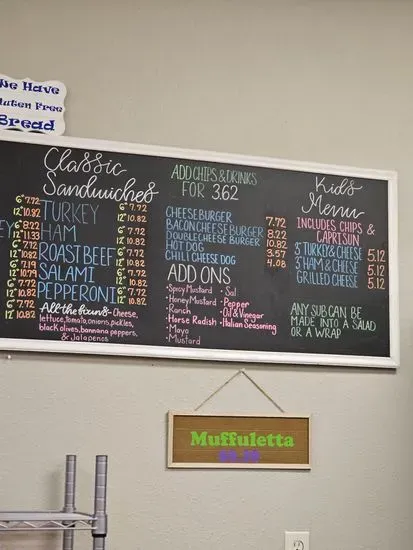 We Have
Gluten Free
Bread
Classic
Sandwiches
6" 7.72
12" 10.92
TURKEY
6" 7.72
12" 10.82
6" 8.22
12" 11.33
HAM
6" 7.72
12" 10.82
6" 7.72
12" 10.92
ROAST BEEF
6" 7.72
12" 10.82
6" 7.19
12" 10.79
SALAMI
6" 7.72
12" 10.82
6" 7.72
12" 10.82
PEPPERONI
6" 7.72
12" 10.82
All the fixin's - Cheese,
lettuce, tomato, onions, pickles,
black olives, bannana peppers,
& Jalapenos
ADD CHIPS & DRINKS
FOR 3.62
CHEESEBURGER 7.72
BACON CHEESEBURGER 8.22
DOUBLE CHEESE BURGER 10.82
HOT DOG 3.57
CHILI CHEESE DOG 4.08
ADD ONS
• Spicy Mustard
• Honey Mustard
• Ranch
• Horse Radish
• Mayo
• Mustard
• Salt
• Pepper
• Oil & Vinegar
• Italian Seasoning
Kid's
Menu
INCLUDES CHIPS &
CAPRISUN
3" TURKEY & CHEESE 5.12
3" HAM & CHEESE 5.12
GRILLED CHEESE 5.12
ANY SUB CAN BE
MADE INTO A SALAD
OR A WRAP
Muffuletta